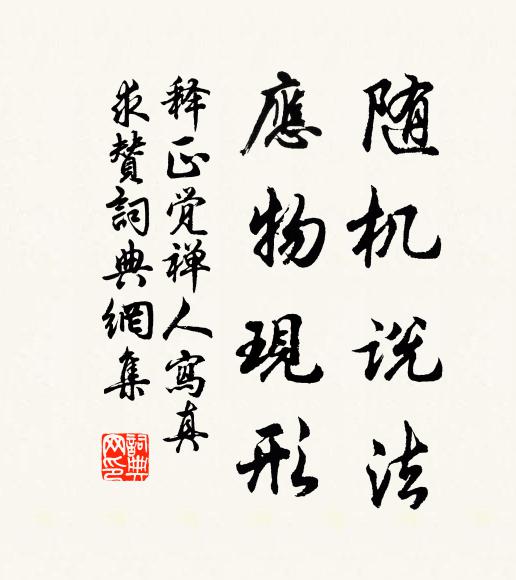 随机说法
應物現形
释正觉禅人寫真
求赞詞典網集
詞典網印